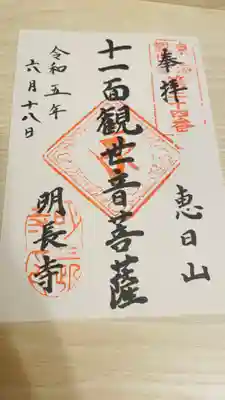 奉拝
恵日山
十一面観世音菩薩
明長寺
令和五年
六月十八日